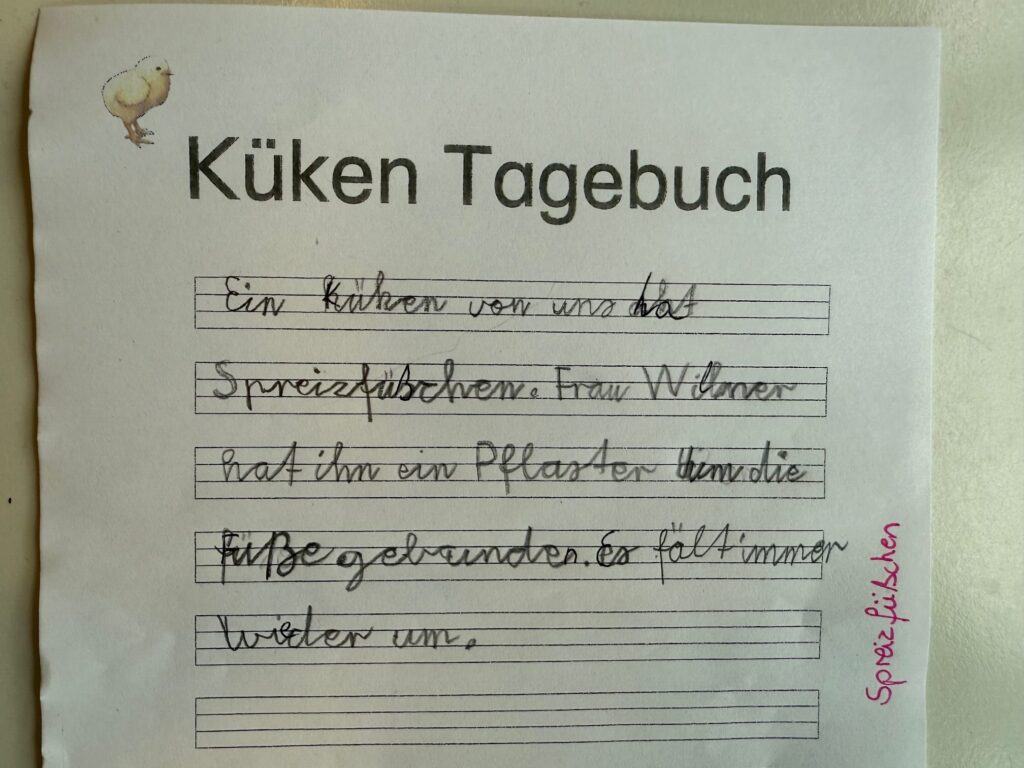 Küken Tagebuch
Ein Küken von uns hat
Spreizfüßchen. Frau Willmer
hat ihn ein Pflaster um die
füße gebunden. Es fält immer
wider um.
Spreizfüßchen